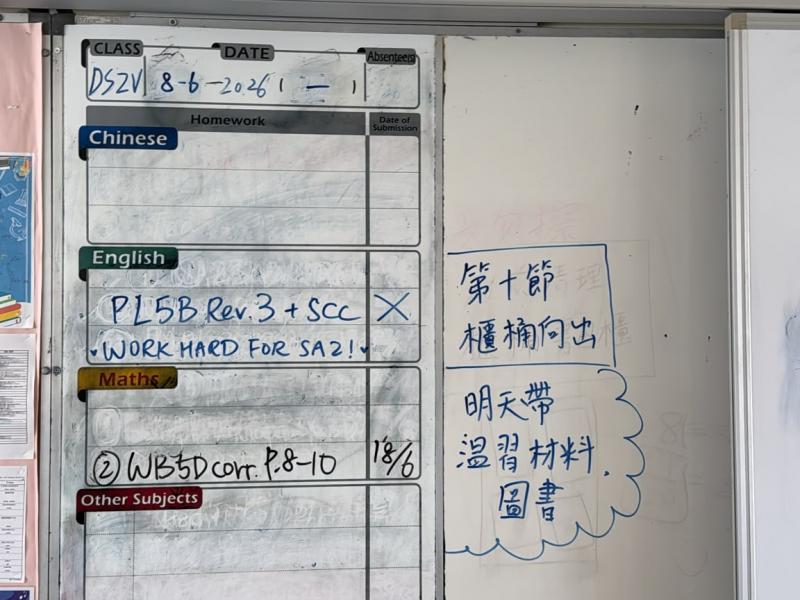 CLASS DATE Absentees
DS2V 8-6-2026 (一)
Homework Date of Submission
Chinese
English
PL5B Rev. 3 + SCC X
WORK HARD FOR SA2!
Maths
② WB5D corr. P.8-10 18/6
Other Subjects
第十節
櫃桶向出
明天帶
温習材料.
圖書